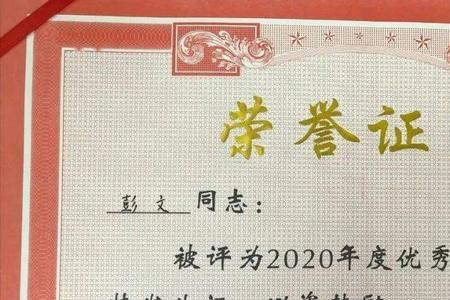 荣誉证
彭文 同志：
被评为2020年度优秀